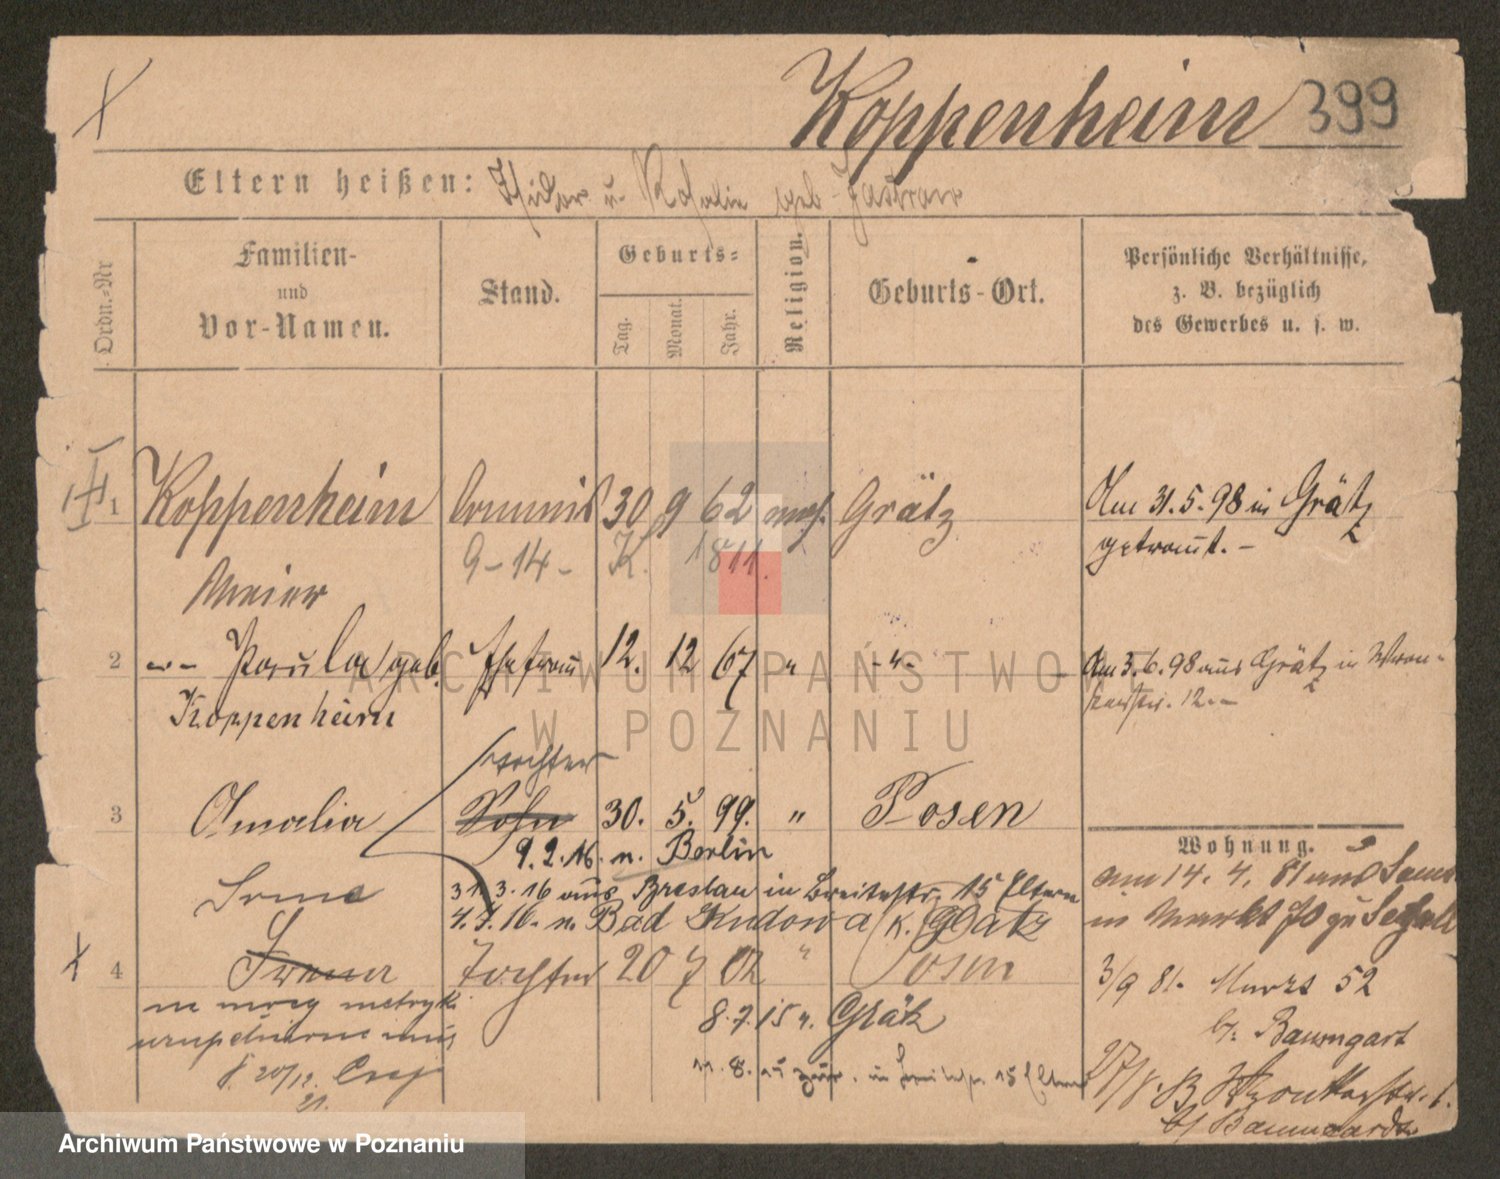 Koppenheim 399
Eltern heißen: Isidor u. Rosalie geb.
Ordn.-Nr
Familien-
und
Vor-Namen.
Stand.
Geburts-
Tag.
Monat.
Jahr.
Religion.
Geburts-Ort.
Persönliche Verhältnisse,
z. B. bezüglich
des Gewerbes u. s. w.
1 Koppenheim Commis 30 9 62 mos. Grätz Am 31.5.98 in Grätz
getraut. -
9-14- K. 1811.
Meier
2 -"- Paula geb. Ehefrau 12. 12 67 " -"- Am 3.6.98 aus Grätz in
Koppenheim
12.-
Tochter
3 Amalia Sohn 30. 5. 99. " Posen
9.2.16. n. Berlin
Wohnung.
Irma 31.3.16 aus Breslau in Breitestr. 15 Eltern
am 14. 4. 81 aus
4.7.16. n. Bad Kudowa K. Glatz
in Markt 70 zu
4 Tochter 20 7 02 " Posen
3/9 81. Markt 52
na mocy metryki
8.7.15 n. Grätz
b. Baumgart
urzędu
11.8.15 zur. in Breitestr. 15 Eltern
20/12.
21.
27/8.
b/
ARCHIWUM PAŃSTWOWE
W POZNANIU
Archiwum Państwowe w Poznaniu